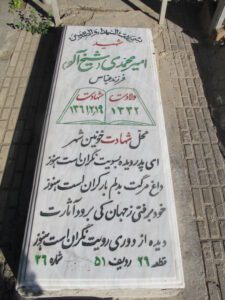 شهید
امیر محمدی (شیخ آلو)
فرزند عباس
ولادت شهادت
۱۳۴۲ ۱۳۶۱/۲/۱۹
محل شهادت خونین شهر
ای پدر دیده بسویت نگران است هنوز
داغ مرگت بدلم بار گران است هنوز
خود برفتی ز جهان کی برود آثارت
دیده از دوری رویت نگران است هنوز
قطعه ۲۹ ردیف ۵۱ شماره ۳۶